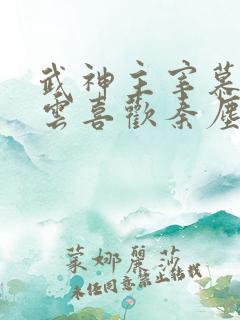 武神主宰慕
雲喜歡秦塵
蒙娜麗莎
未经同意禁止转载